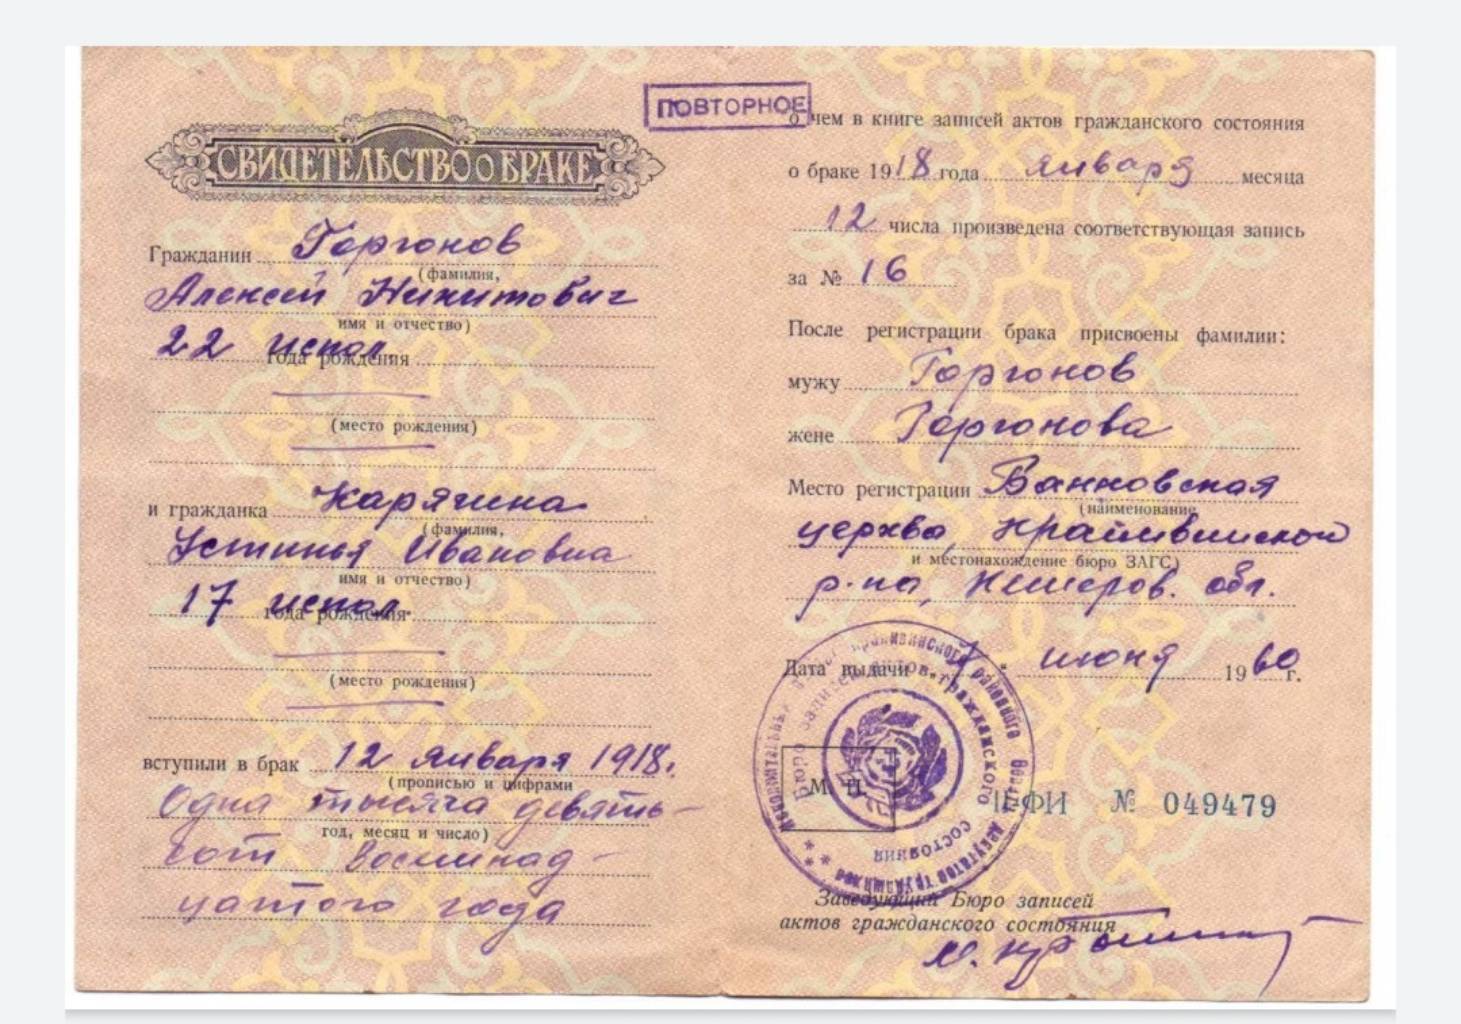 СВИДЕТЕЛЬСТВО О БРАКЕ
Гражданин Горгонов
(фамилия,
Алексей Никитович
имя и отчество)
22 испол. года рождения
(место рождения)
и гражданка Карягина
(фамилия,
Устинья Ивановна
имя и отчество)
17 испол. года рождения
(место рождения)
вступили в брак 12 января 1918.
(прописью и цифрами
Одна тысяча девять-
год, месяц и число)
сот восемнад-
цатого года
ПОВТОРНОЕ
о чем в книге записей актов гражданского состояния
о браке 1918 года января месяца
12 числа произведена соответствующая запись
за № 16
После регистрации брака присвоены фамилии:
мужу Горгонов
жене Горгонова
Место регистрации Банновская
(наименование
церковь, Крапивинской
и местонахождение бюро ЗАГС)
р-на, Кемеров. обл.
Дата выдачи июня 1960 г.
Крапивинского районного Совета депутатов трудящихся
Бюро записей актов гражданского состояния
М. П.
№ 049479
Заведующий Бюро записей
актов гражданского состояния